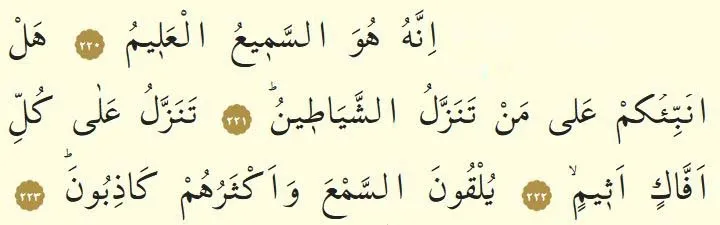 اِنَّهُ هُوَ السَّمٖيعُ الْعَلٖيمُ ﴿٢٢٠﴾ هَلْ
اُنَبِّئُكُمْ عَلٰى مَنْ تَنَزَّلُ الشَّيَاطٖينُؕ ﴿٢٢١﴾ تَنَزَّلُ عَلٰى كُلِّ
اَفَّاكٍ اَثٖيمٍۙ ﴿٢٢٢﴾ يُلْقُونَ السَّمْعَ وَاَكْثَرُهُمْ كَاذِبُونَؕ ﴿٢٢٣﴾